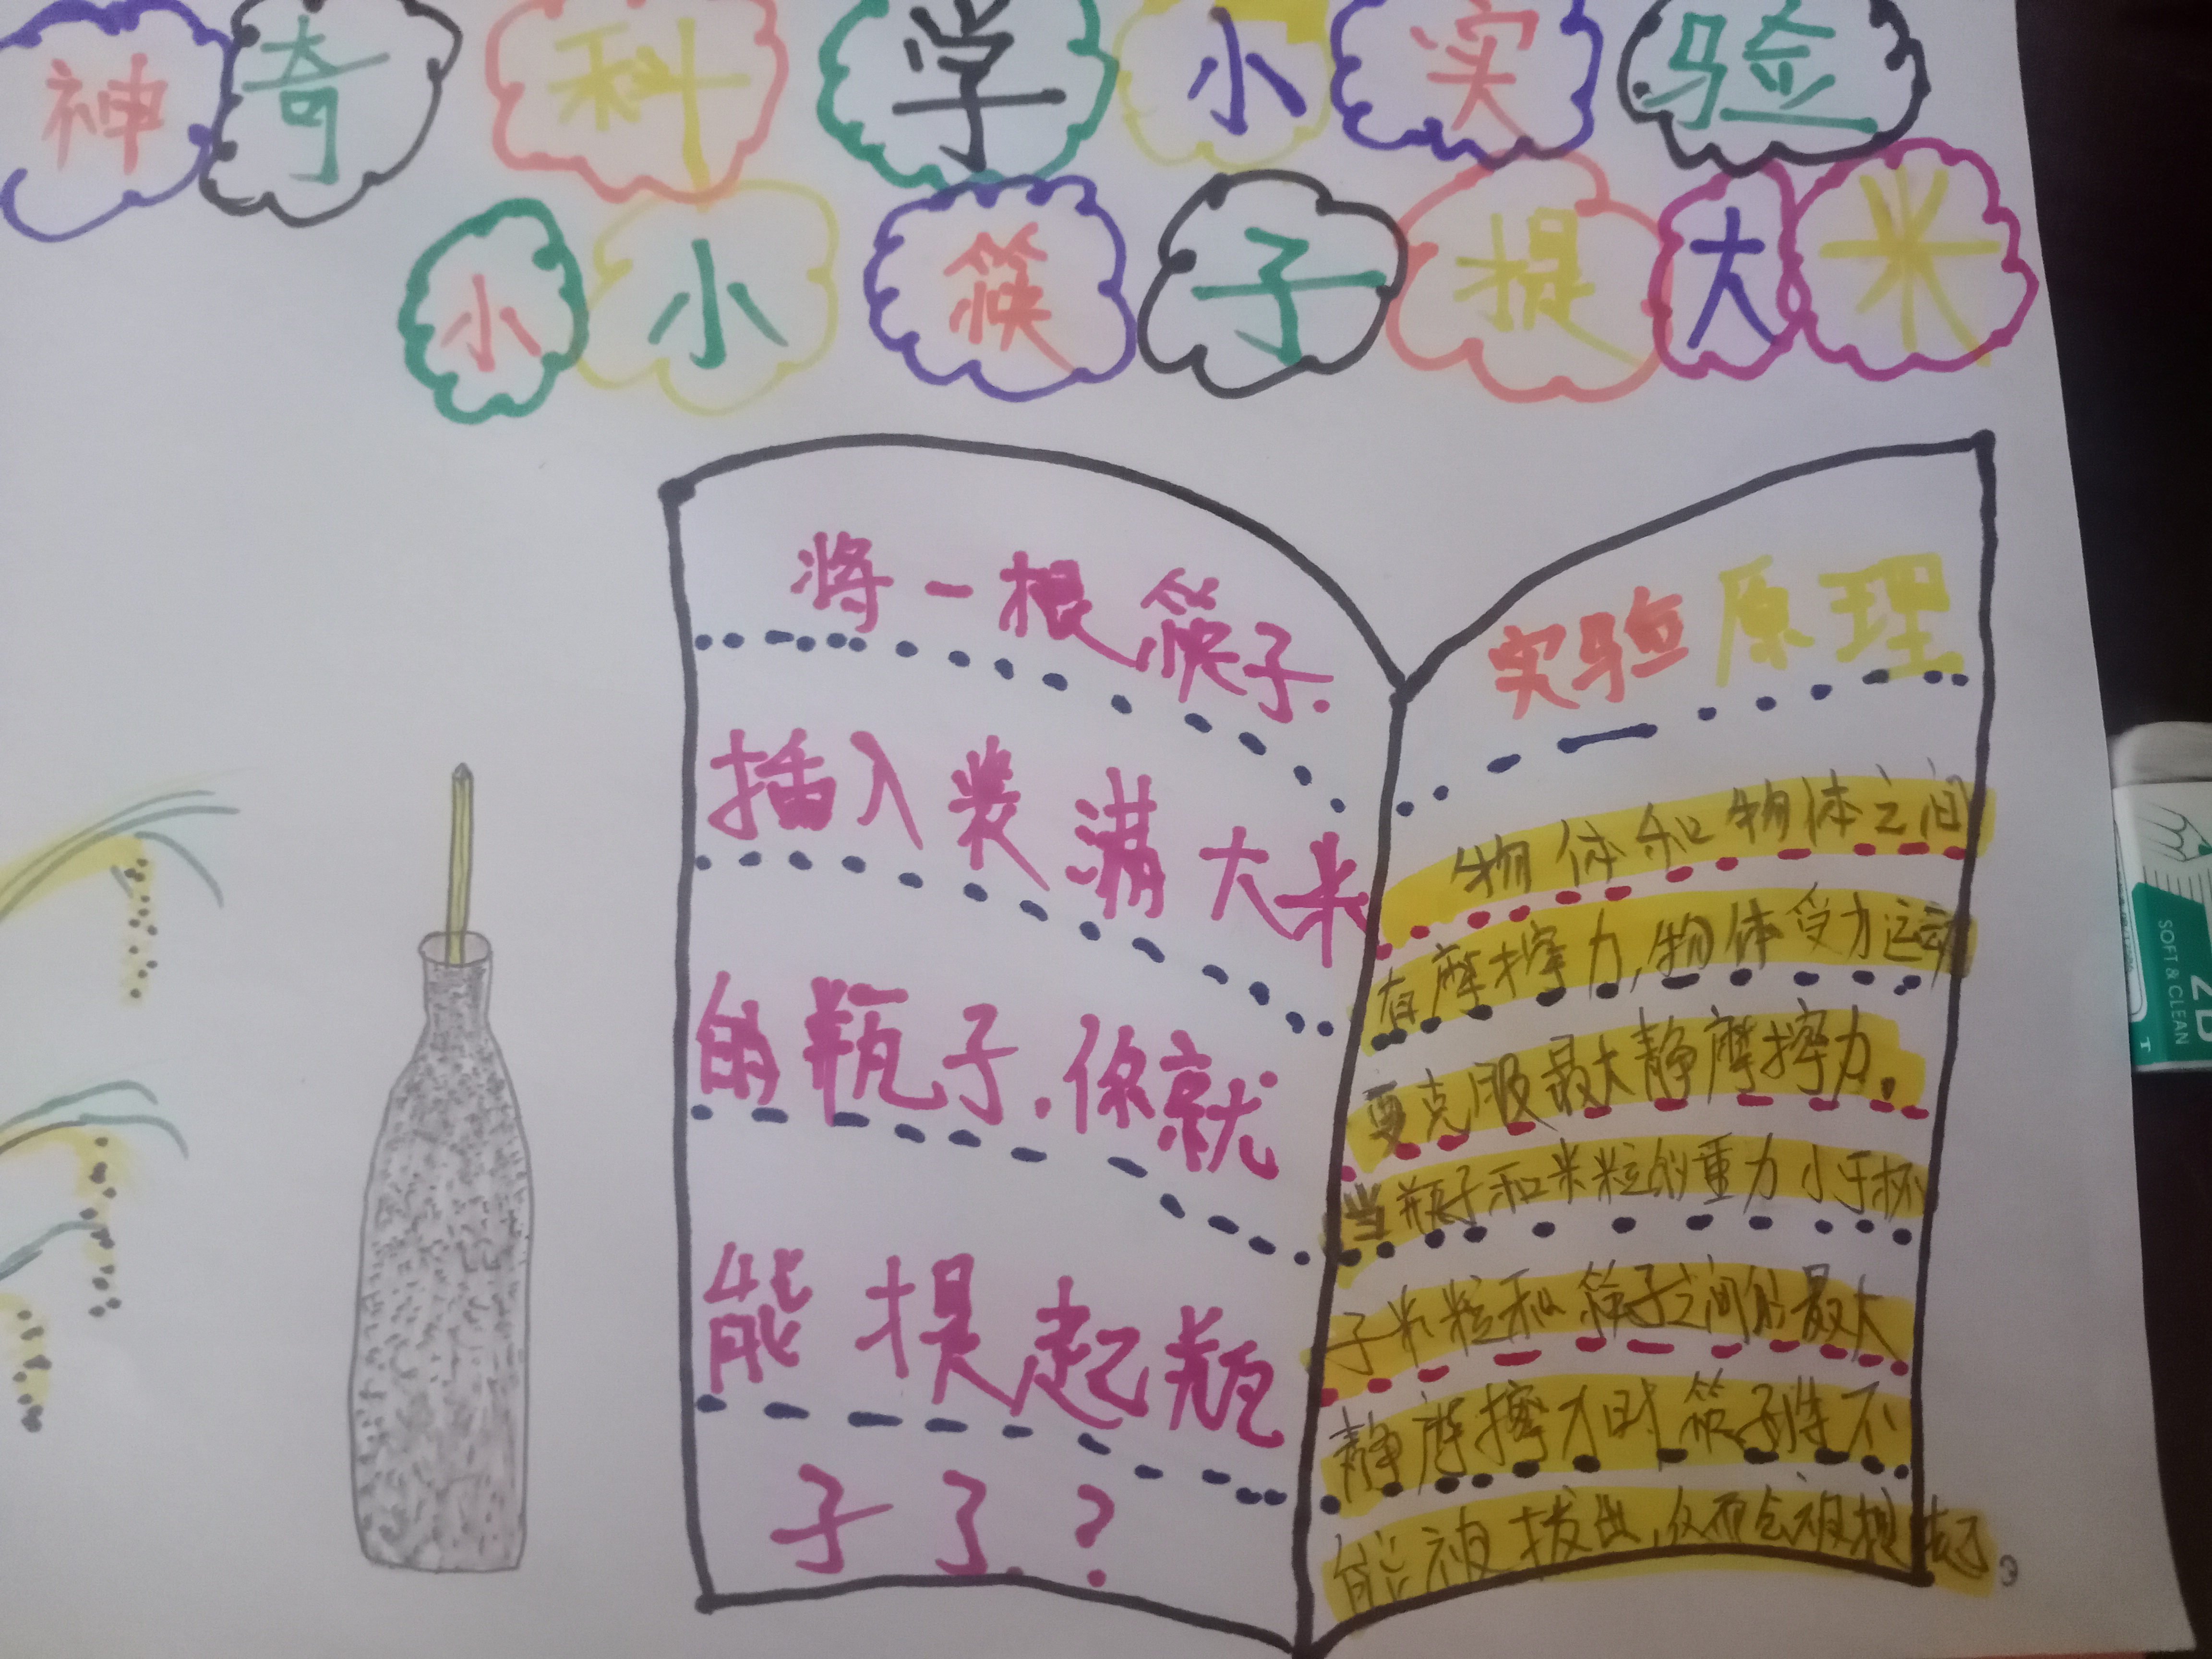 神奇科学小实验
小小筷子提大米
将一根筷子.
插入装满大米
的瓶子.你就
能提起瓶
子了.?
实验原理
物体和物体之间
有摩擦力,物体受力运动
要克服最大静摩擦力.
当瓶子和米粒的重力小于杯
子米粒和筷子之间的最大
静摩擦力时筷子性不
能被拔出,仅而会被提起。
2B
SOFT & CLEAN
T